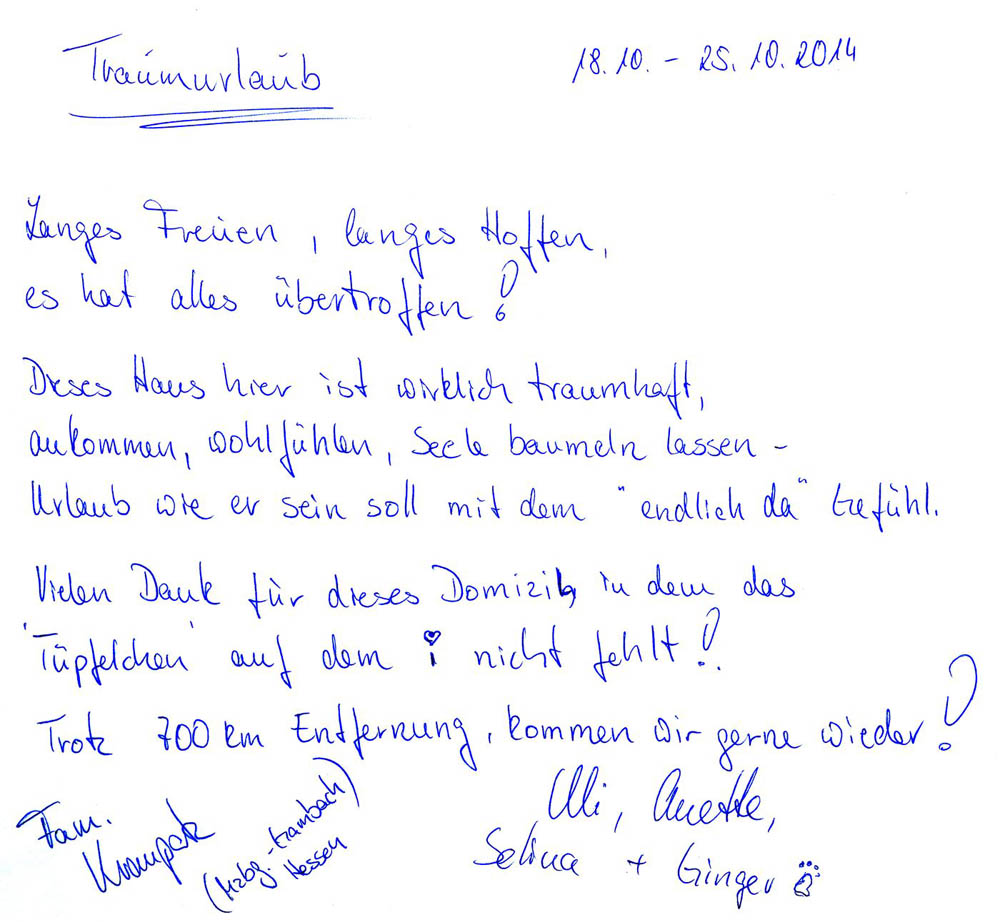 Traumurlaub 18.10. - 25.10.2014
Langes Freuen, langes Hoffen,
es hat alles übertroffen!
Dieses Haus hier ist wirklich traumhaft,
ankommen, wohlfühlen, Seele baumeln lassen -
Urlaub wie er sein soll mit dem "endlich da" Gefühl.
Vielen Dank für dieses Domizil, in dem das
'Tüpfelchen' auf dem i nicht fehlt!
Trotz 700 km Entfernung, kommen wir gerne wieder!
Uli, Anette,
Selina + Ginger
Fam.
(Hzbg.-
Hessen)